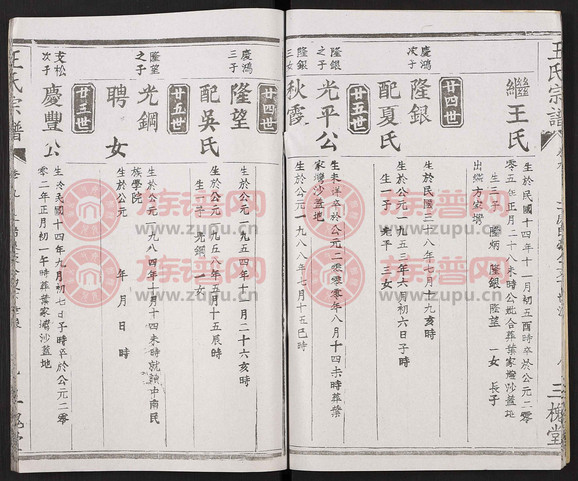 王氏宗譜
三槐堂
繼王氏
生於民國十四年十一月初五酉時卒於公元二零
零五年正月二十八未時公妣合葬葉家壪沙蓋地
生三子 隆炳 隆銀 隆望 一女 長子
出繼方家壪
廿四世
慶鴻
次子
隆銀
生於民國三十八年七月十九亥時
配夏氏
生於公元一九五三年六月初六日子時
生一子 光平 三女
廿五世
隆銀
之子
光平公
生未詳卒於公元二零零零年八月十四未時葬葉
家壪沙蓋地
隆銀
三女
秋霞
生於公元一九八八年七月十五巳時
廿四世
慶鴻
三子
隆望
生於公元一九五四年十一月二十六亥時
配吳氏
生於公元一九五八年五月十五辰時
生一子 光鋼 一女
廿五世
隆望
之子
光鋼
生於公元一九八四年十月十四未時就讀中南民
族學院
聘 女
生於公元 年 月 日 時
廿三世
支松
次子
慶豐公
生於民國十四年九月初七日子時卒於公元二零
零二年正月初一午時葬葉家壪沙蓋地
王氏宗譜
族譜网
www.zupu.cn